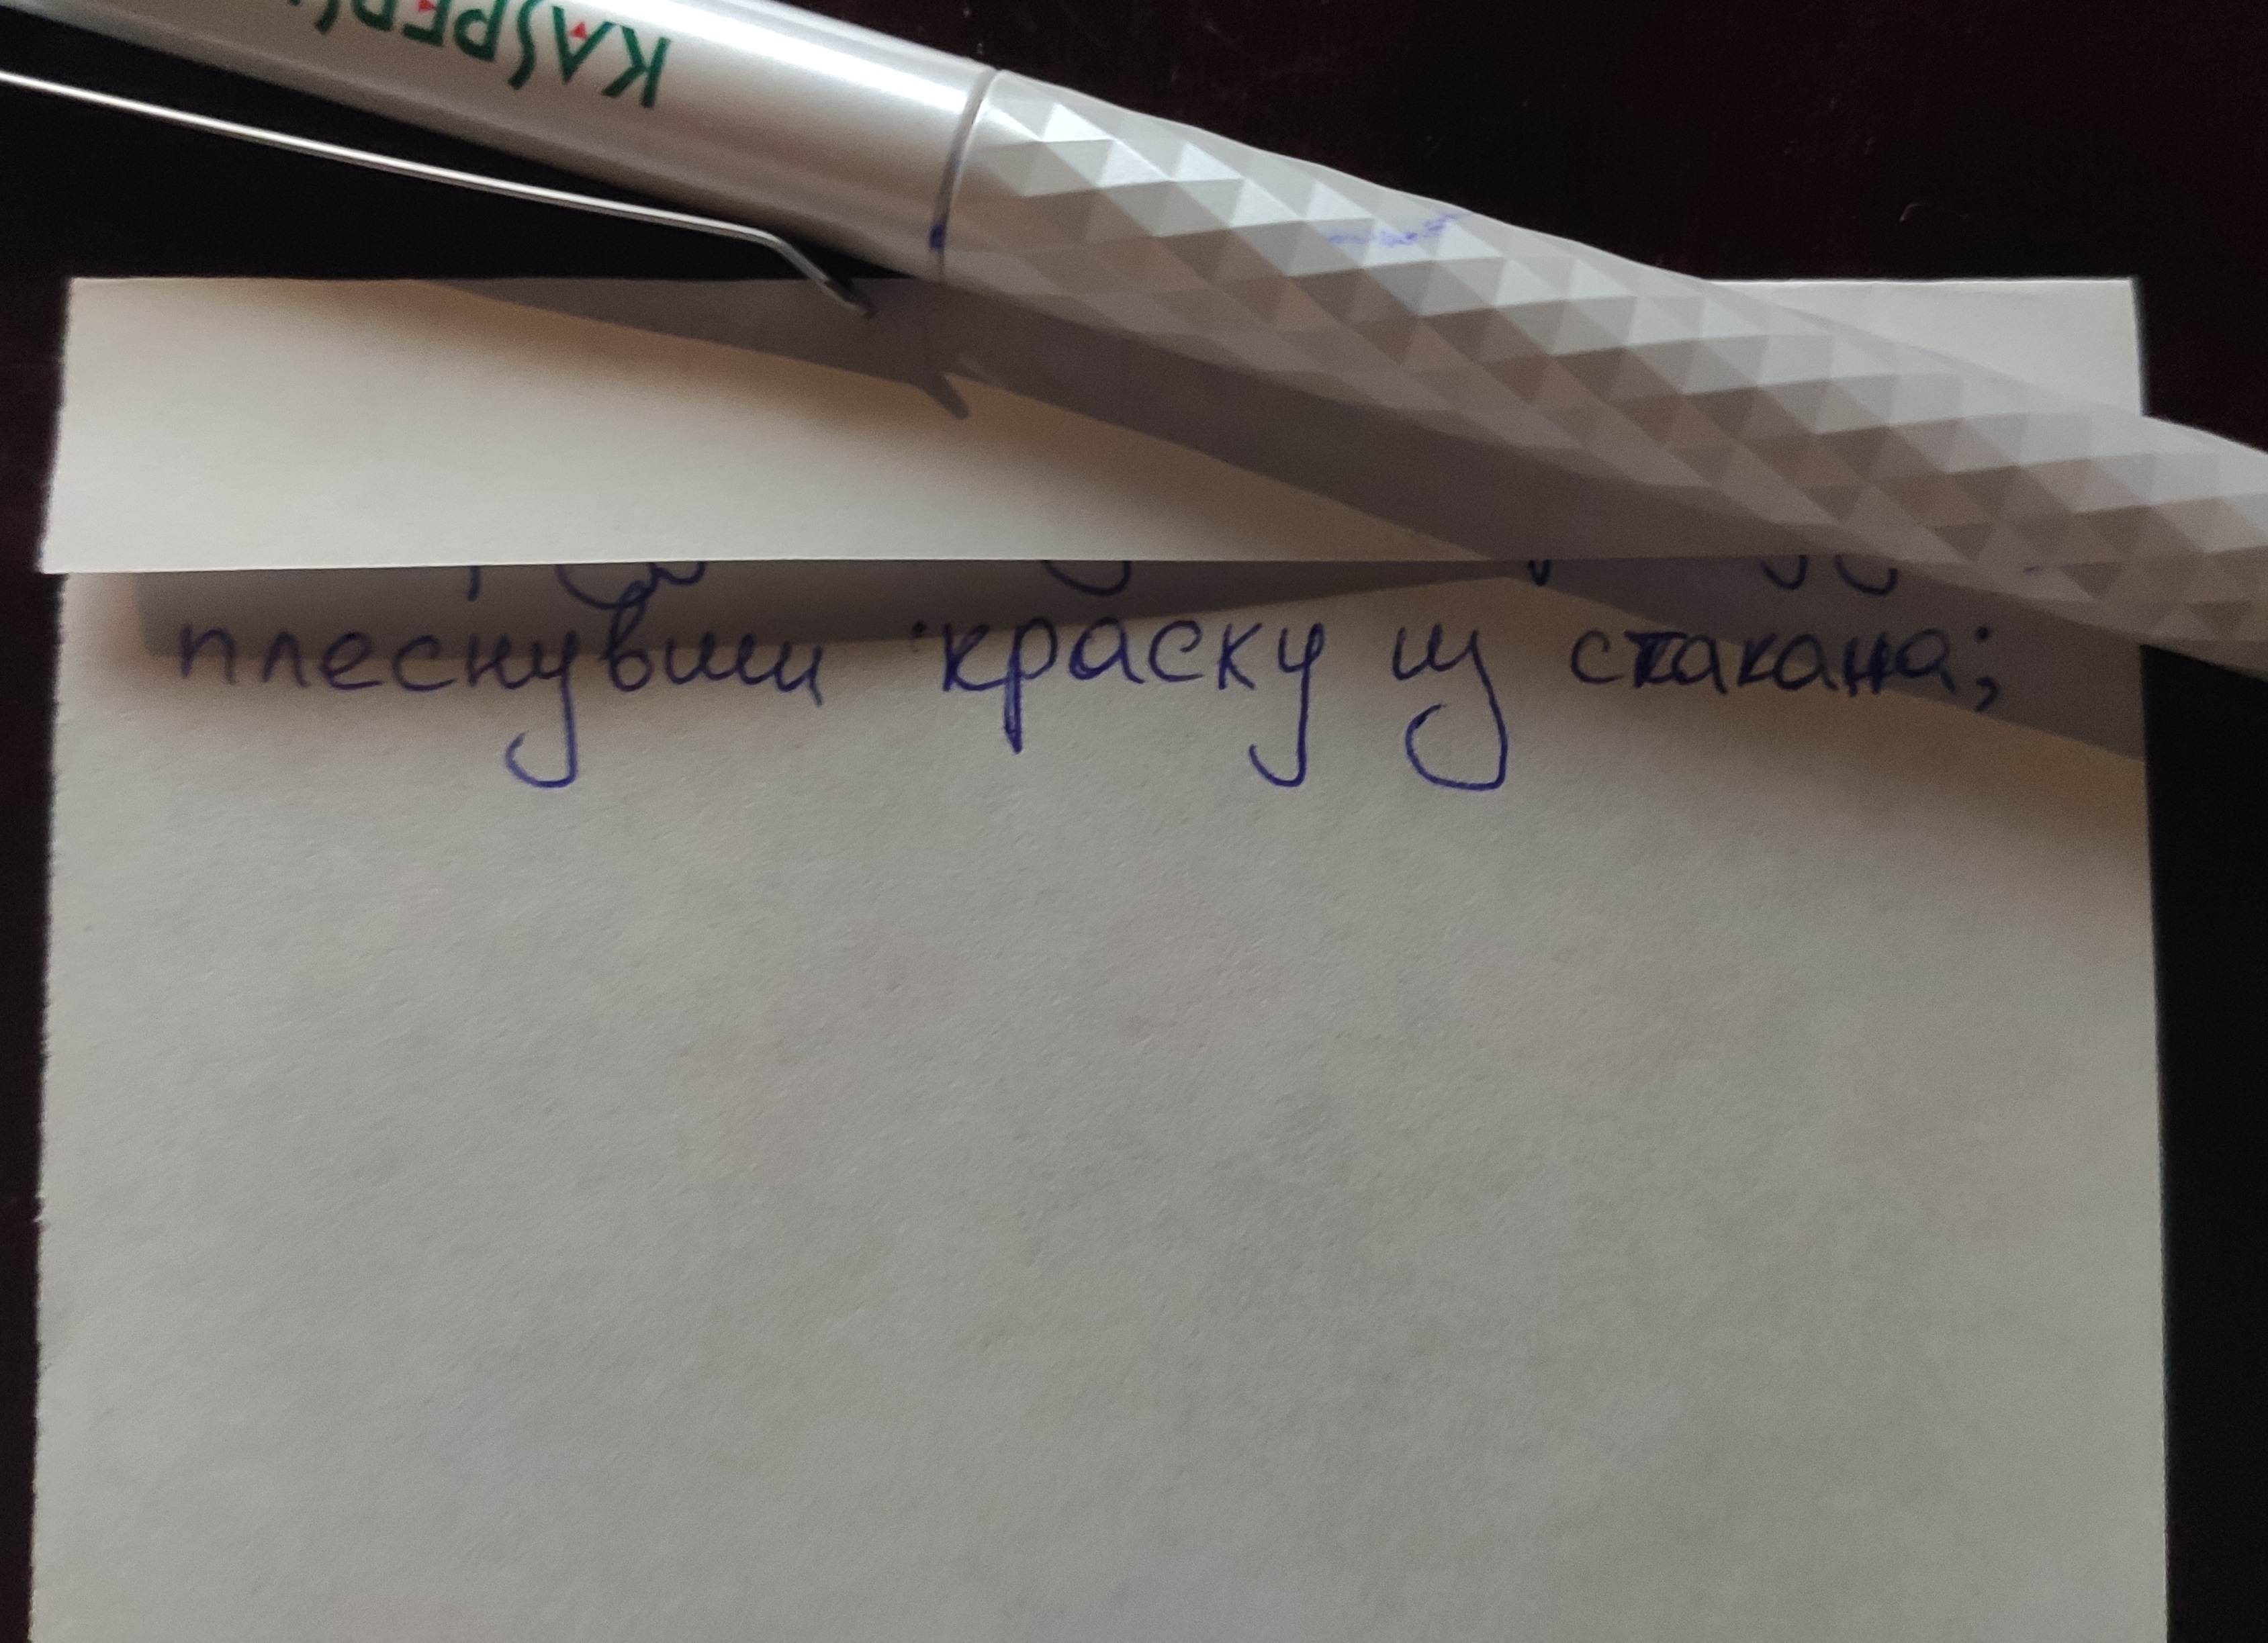 KASPERS
плеснувши краску из стакана;